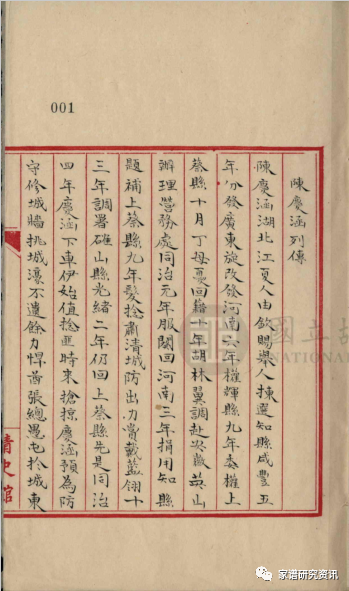 001
陳慶涵列傳
陳慶涵湖北江夏人由欽賜舉人揀選知縣咸豐五
年分發廣東旋改發河南六年權輝縣九年委權上
蔡縣十月丁母憂回籍十年胡林翼調赴安徽英山
辦理營務處同治元年服闋回河南三年捐用知縣
題補上蔡縣九年髮捻肅清城防出力賞戴藍翎十
三年調署確山縣光緒二年仍回上蔡縣先是同治
四年慶涵下車伊始值捻匪時來搶掠慶涵預為防
守修城牆挑城濠不遺餘力悍酋張總愚屯於城東
清史館
國立故
NATIONAL
家谱研究资讯